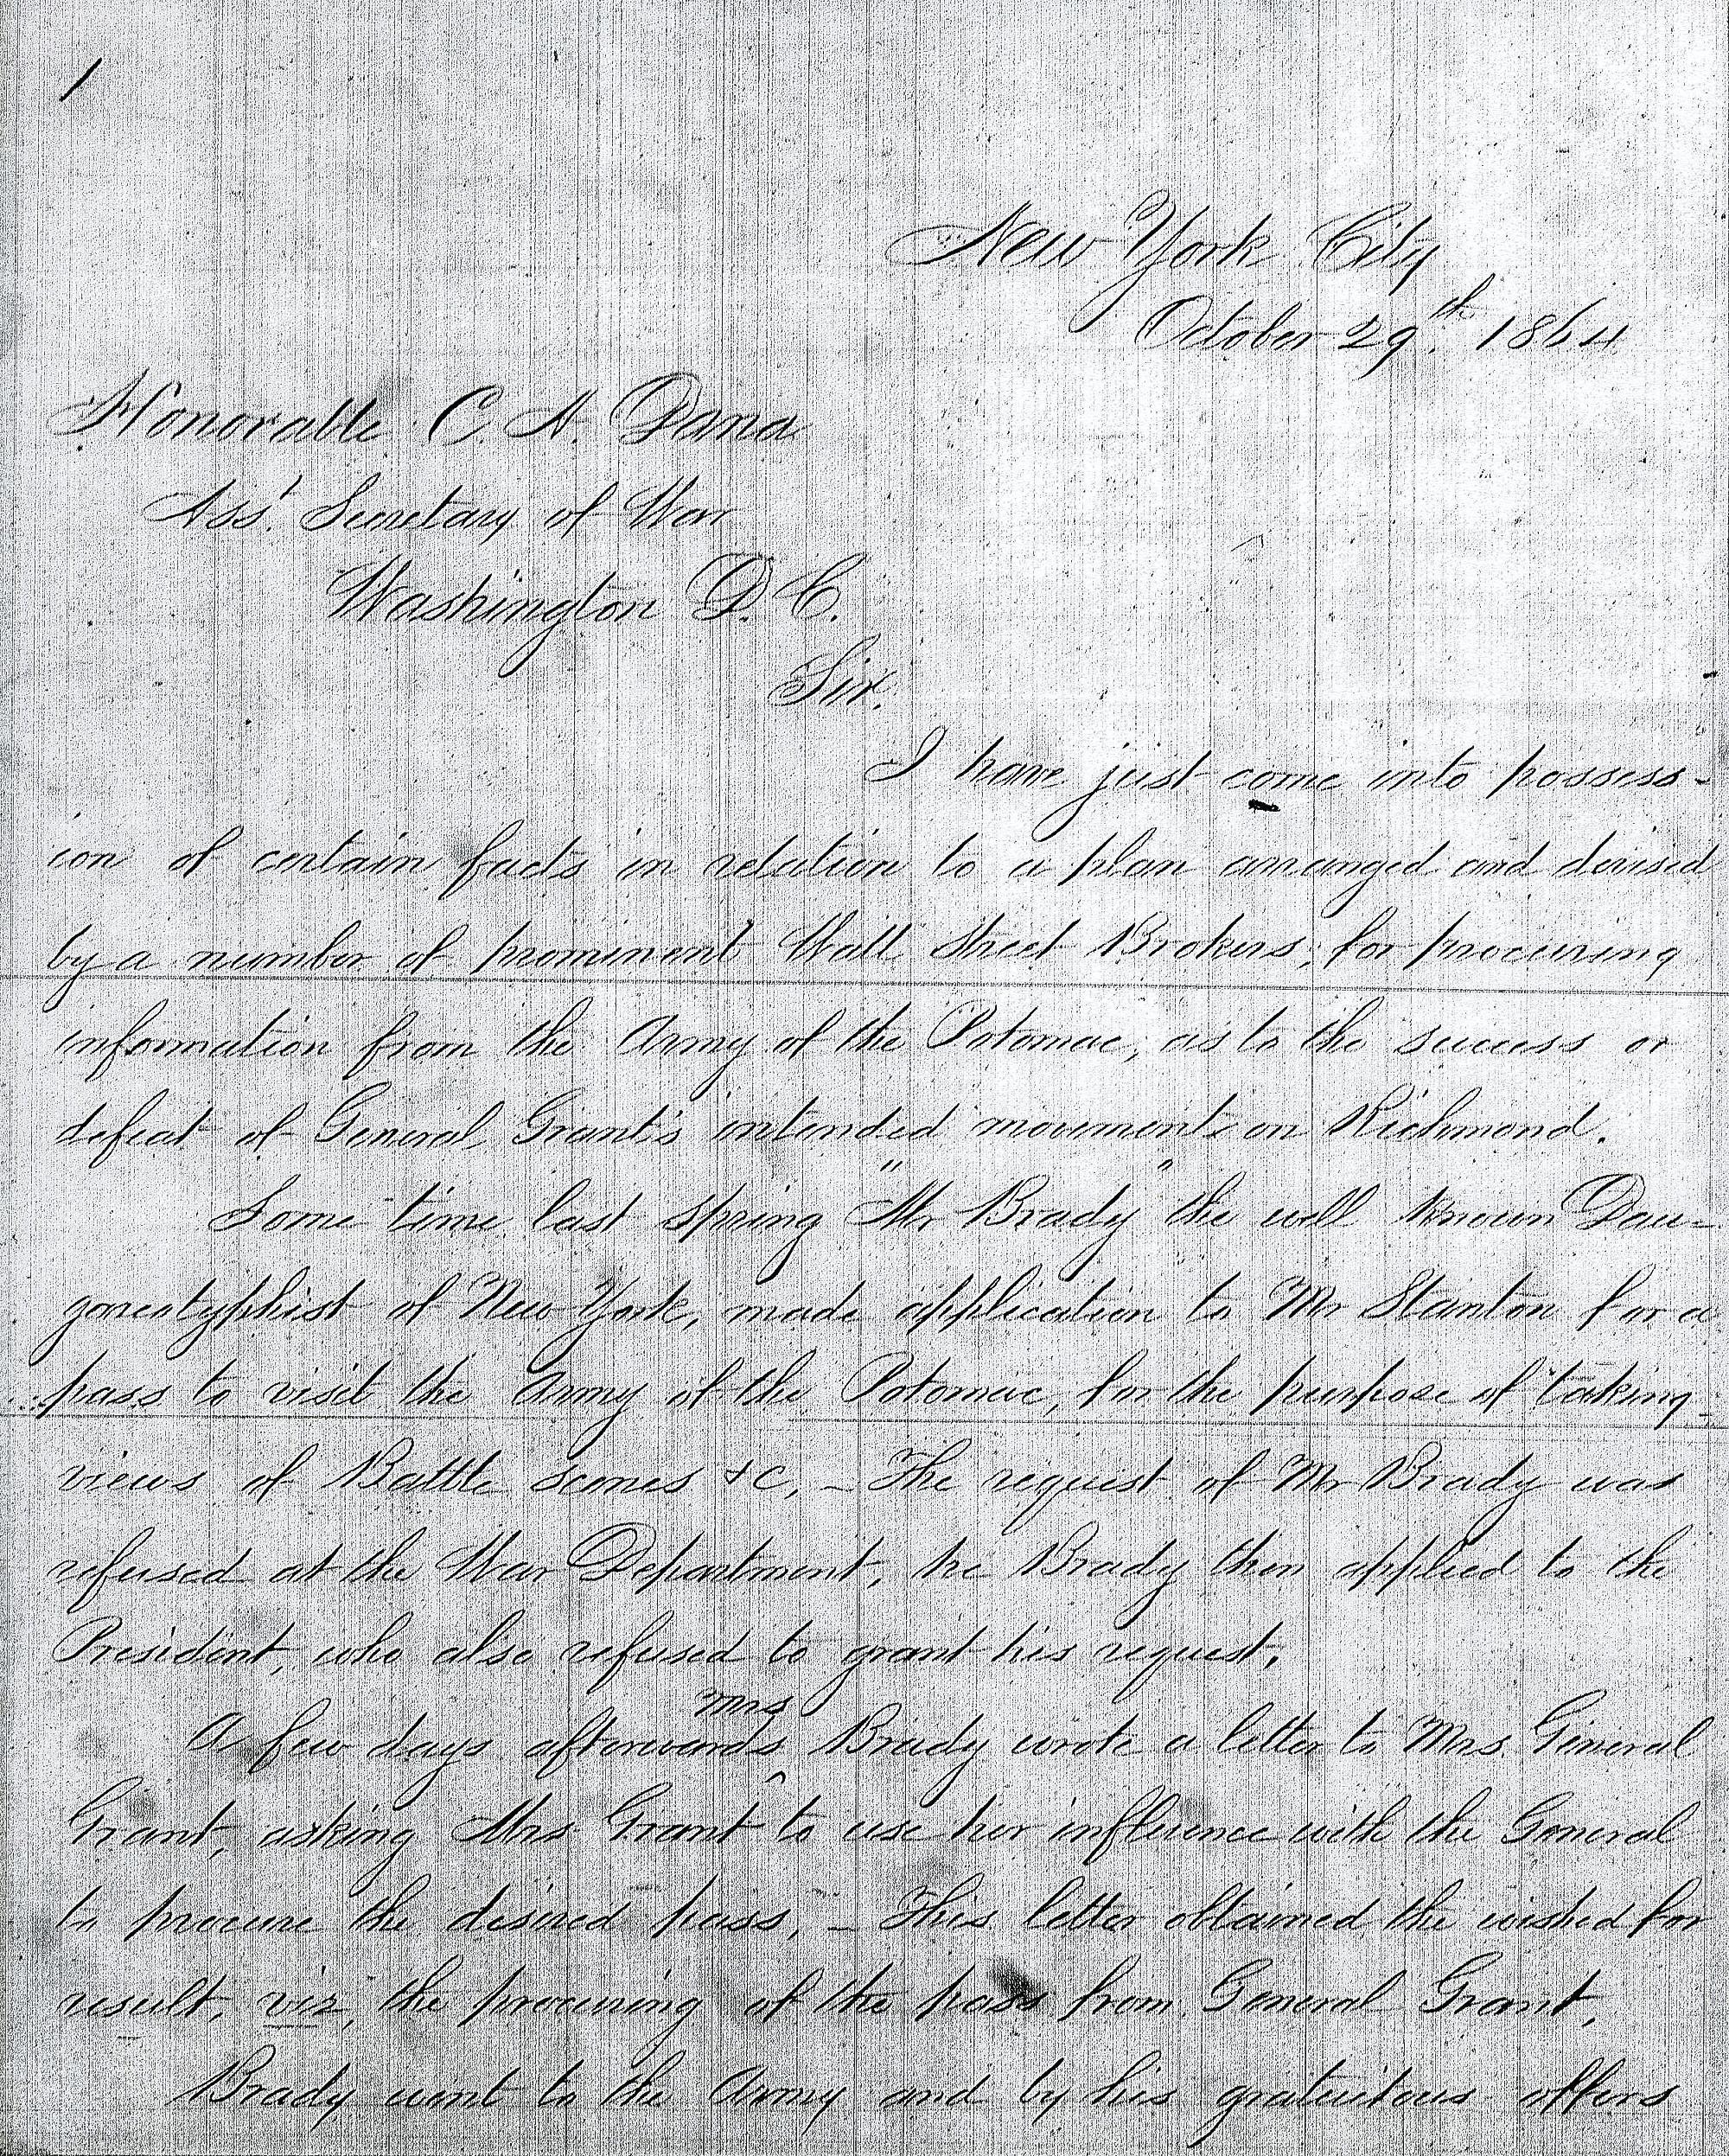 1
New York City
October 29th 1864
Honorable C. A. Dana
Ass't Secretary of War
Washington D. C.
Sir.
I have just come into possess-
ion of certain facts in relation to a plan arranged and devised
by a number of prominent Wall Street Brokers, for procuring
information from the Army of the Potomac, as to the success or
defeat of General Grant's intended movements on Richmond.
Some time last spring "Mr Brady" the well known Dau-
goreatyphist of New York, made application to Mr Stanton for a
pass to visit the Army of the Potomac, for the purpose of taking
views of Battle scenes &c, – The request of Mr Brady was
refused at the War Department, he Brady then applied to the
President, who also refused to grant his request.
A few days afterwards ^Mrs Brady wrote a letter to Mrs. General
Grant, asking Mrs Grant to use her influence with the General
to procure the desired pass, – This letter obtained the wished for
result, viz, the procuring of the pass from General Grant.
Brady went to the Army and by his gratuitous offers